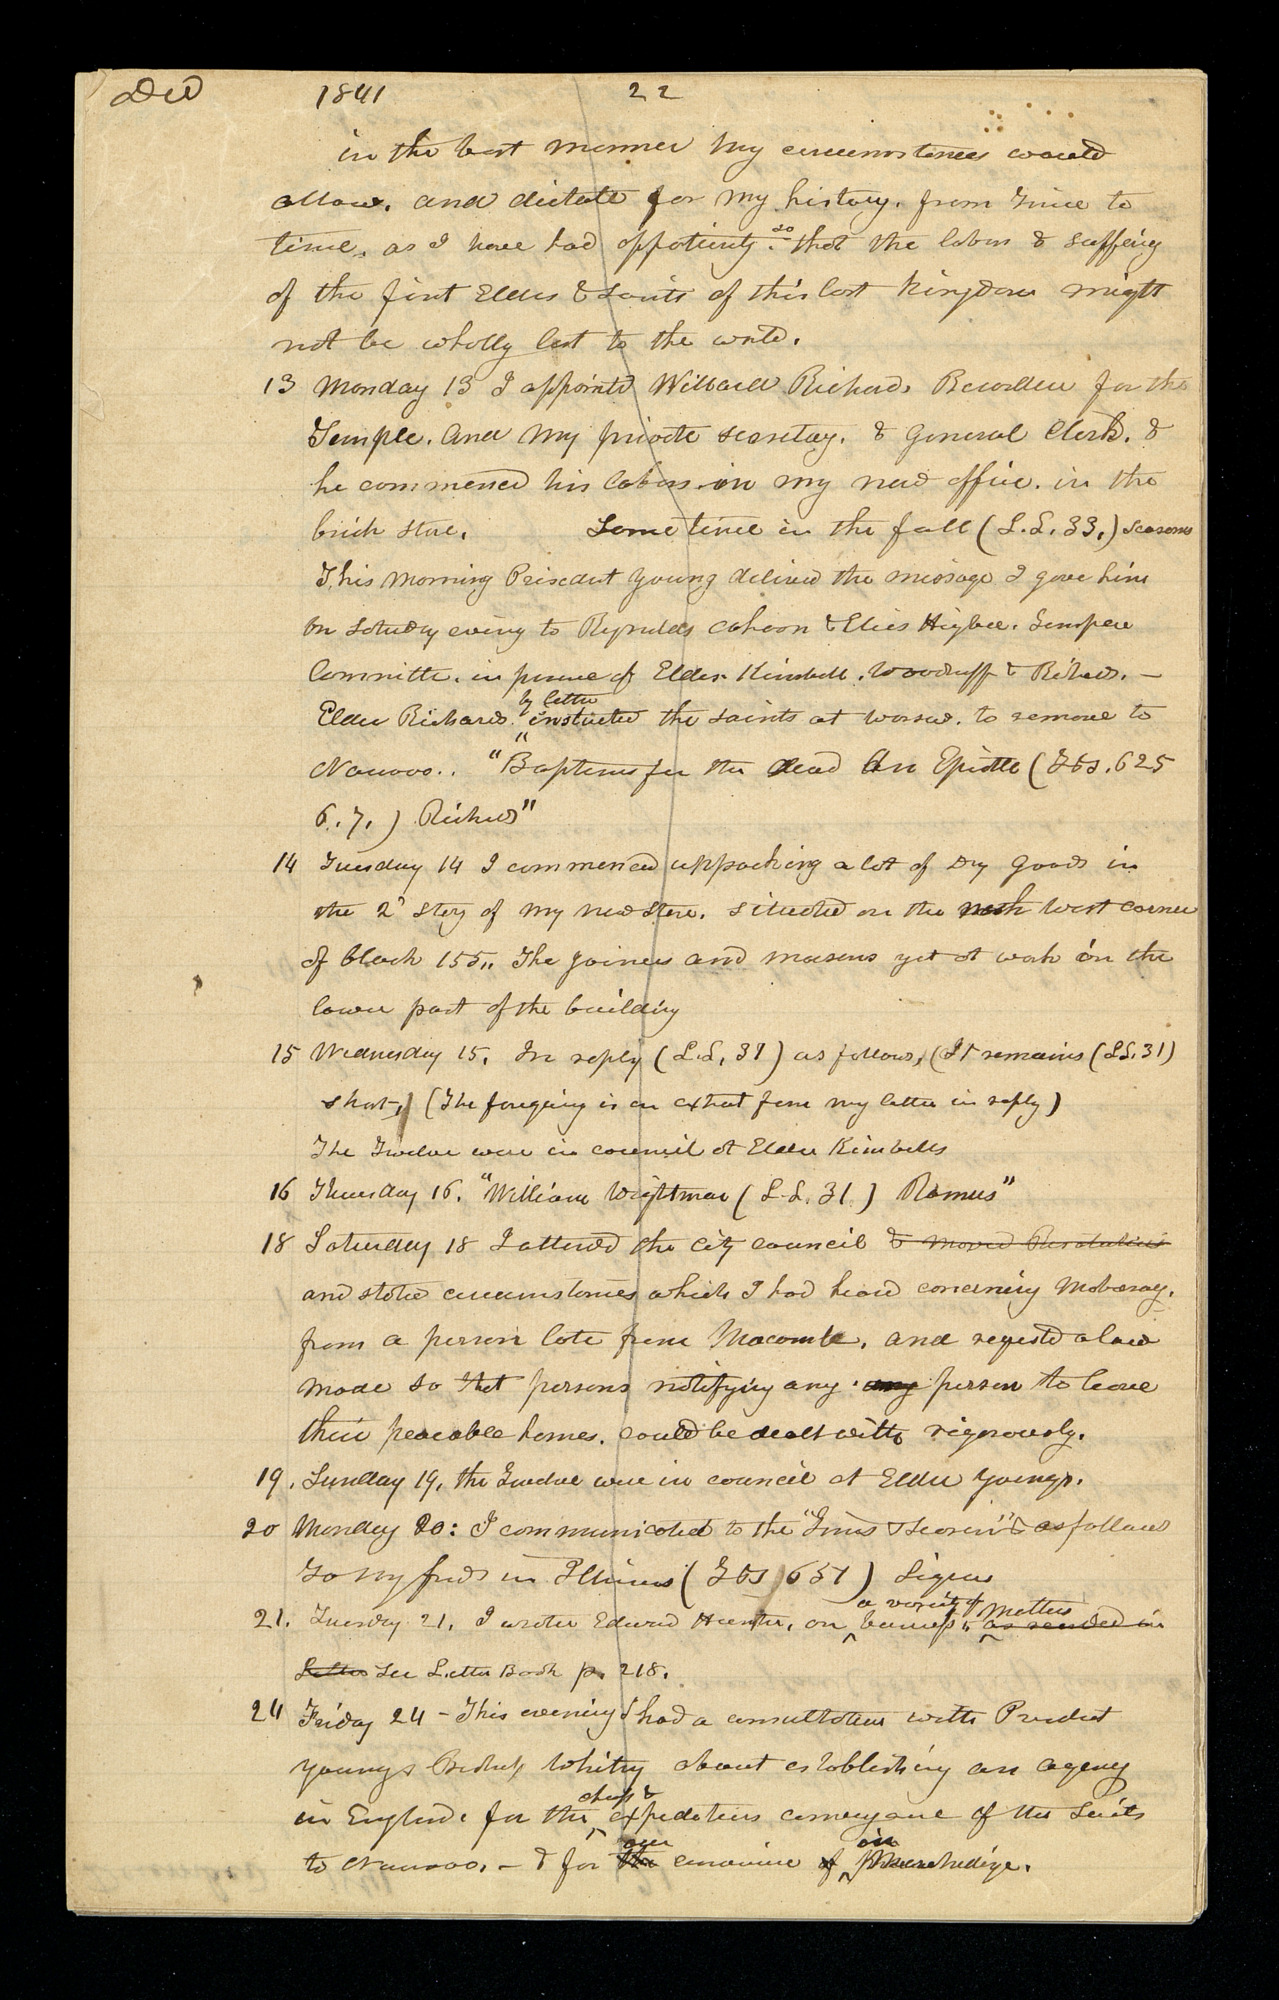 Dec 1841 22
in the best manner my circumstances would
allow. and dictate for my history. from time to
time, as I have had oppotunity. so that the labors & suffering
of the first Elders & Saints of this last Kingdom might
not be wholly lost to the world.
13 Monday 13 I appointed Willard Richards Recorder for the
Temple. and my private secretary. & General Clerk. &
he commenced his labors in my new office. in the
brick store. Some time in the fall (L.L. 33,) seasons
This morning President Young delivered the message I gave him
on Saturday evening to Reynolds Cahoon & Elias Higbee. Temple
Committe. in presence of Elders Kimball. Woodruff & Richards. —
Elder Richards. by letter instructed the saints at Warsaw. to remove to
Nauvoo.. "Baptism for the dead An Epistle (T & S. 625
6. 7. ) Richards"
14 Tuesday 14 I commenced uppacking a lot of Dry Goods in
the 2d story of my new store. situated on the north west corner
of block 155,, The joiners and masons yet at work on the
lower part of the building
15 Wednesday 15. In reply (L.L, 31) as follows, (It remains (L.L. 31)
short,) (The foregoing is an extract from my letter in reply)
The Twelve were in council at Elder Kimballs
16 Thursday 16. "William Wightman (L.L. 31.) Ramus"
18 Saturday 18 I attended the City Council & moved Resolutions
and stated circumstances which I had heard concerning Mobocracy.
from a person late from Macomb. and requested a law
made so that persons notifying any any person to leave
their peaceable homes. could be dealt with rigorously.
19. Sunday 19, the Twelve were in council at Elder Youngs.
20 Monday 20: I communicated to the "Times & Seasons" & as follows
To my friends in Illinois (T & S 651) Signed
21. Tuesday 21, I wrote Edward Hunter, on a variety of business matters as recorded in
Letter See Letter Book p. 218.
24 Friday 24 – This evening I had a consultation with President
Young & Bishop Whitney about establishing an agency
in England. for the cheap & expeditious conveyance of the Saints
to Nauvoo. – & for the over of in Merchandize.